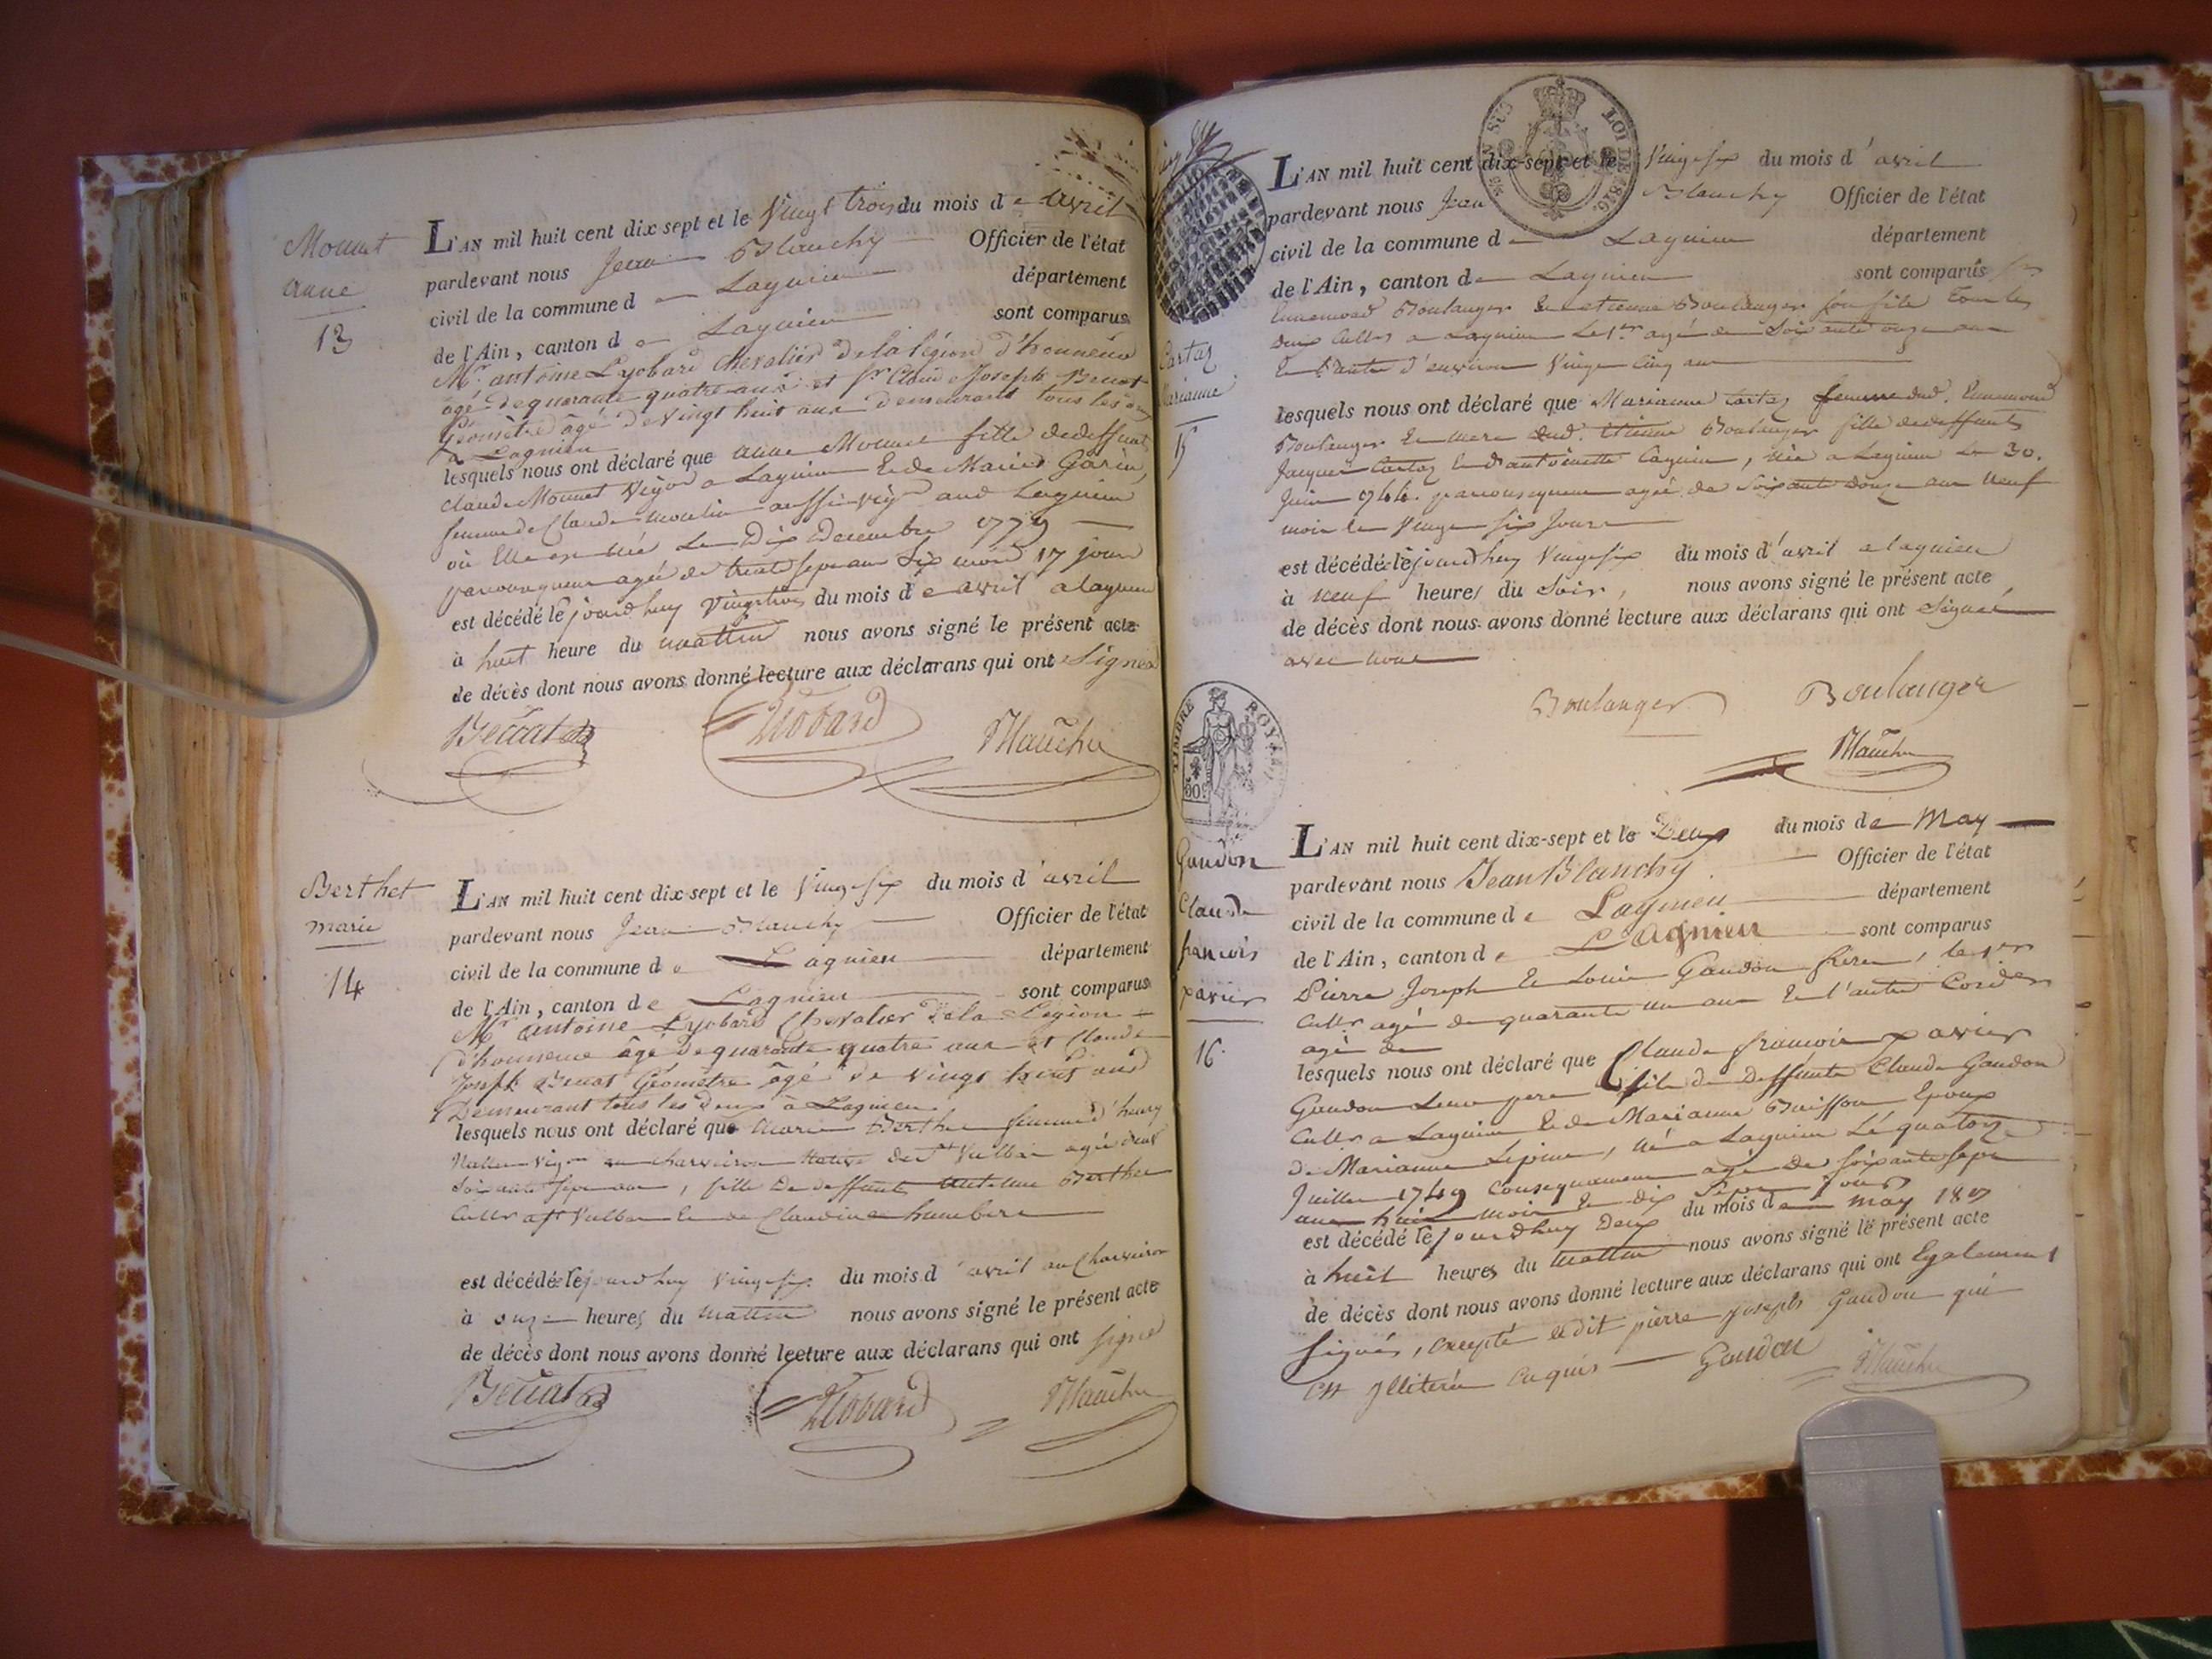 Monnet
anne
13
L'AN mil huit cent dix-sept et le Vingt trois du mois de avril
pardevant nous Jean Blanchy Officier de l'état
civil de la commune de Lagnieu département
de l'Ain, canton de Lagnieu sont comparus
Mr. antoine Lyobard chevalier de la légion d'honneur
âgé de quarante quatre ans et Sr. Claude Joseph
Géomètre âgé de vingt huit ans demeurant tous les deux
à Lagnieu
lesquels nous ont déclaré que anne Monnet fille de deffunt
claude Monnet Vigon a Lagnieu Et de Marie Garin,
femme de Claude moulin aussi vign aud Lagnieu
où Elle est née Le Dix Decembre 1779
parconsequent agée de trente sept ans Six mois 17 jours
est décédé le jourdhuy Vingt trois du mois de avril a lagnieu
à huit heure du mattin nous avons signé le présent acte
de décès dont nous avons donné lecture aux déclarans qui ont Signés
Lyobard Blanchy
Berthet
marie
14
L'AN mil huit cent dix-sept et le Vingt Six du mois d'avril
pardevant nous Jean Blanchy Officier de l'état
civil de la commune de Lagnieu département
de l'Ain, canton de Lagnieu sont comparus
Mr antoine Lyobard Chevalier de la Légion
d'honneur âgé de quarante quatre ans et Claude
Joseph Géomètre âgé de vingt huit ans
Demeurant tous les deux à Lagnieu
lesquels nous ont déclaré que Marie Berthet femme d'henry
vign au charveiron native de St Vulbas agée de
soixante sept ans, fille de deffunt antoine Berthet
Cultr a St Vulbas Et de Claudine humbert
est décédée le jourdhuy vingt six du mois d'avril au Charveiron
à onze heures du mattin nous avons signé le présent acte
de décès dont nous avons donné lecture aux déclarans qui ont signé
Lyobard Blanchy
LOI DE 1816
Cartaz
Marianne
15
L'AN mil huit cent dix-sept et le Vingt six du mois d'avril
pardevant nous Jean Blanchy Officier de l'état
civil de la commune de Lagnieu département
de l'Ain, canton de Lagnieu sont comparus Srs
Ennemond Boulanger Et etienne Boulanger son fils tous les
deux Cultrs a Lagnieu Le 1er. agé de Soixante onze ans
Et l'autre d'environ Vingt Cinq ans
lesquels nous ont déclaré que Marianne Cartaz femme dud. Ennemond
Boulanger Et mere dud. Etienne Boulanger fille de deffunts
Jacques Cartaz Et d'antoinette Cagnin, née a Lagnieu Le 30.
Juin 1744. parconsequent agée de Soixante douze ans neuf
mois et Vingt six Jours
est décédée le jourdhuy Vingt six du mois d'avril a lagnieu
à neuf heures du Soir, nous avons signé le présent acte
de décès dont nous avons donné lecture aux déclarans qui ont Signé
avec nous
Boulanger Boulanger
Blanchy
TIMBRE ROYAL
Gaudon
Claude
francois
xavier
16.
L'AN mil huit cent dix-sept et le Deux du mois de May
pardevant nous Jean Blanchy Officier de l'état
civil de la commune de Lagnieu département
de l'Ain, canton de Lagnieu sont comparus
Pierre Joseph Et Louis Gaudon freres, le 1er
Cultr agé de quarante un ans Et l'autre Cordr
agé de
lesquels nous ont déclaré que Claude francois xavier
Gaudon Leur pere fils de Deffunts Claude Gaudon
Cultr a Lagnieu Et de Marianne Buisson Epoux
de Marianne Lejeune, né a Lagnieu Le quatorze
Juillet 1749 Consequament agé de soixante sept
ans huit mois Et dix Sept Jours
est décédé le jourdhuy Deux du mois de may 1817
à huit heures du mattin nous avons signé le présent acte
de décès dont nous avons donné lecture aux déclarans qui ont Egalement
signés, excepté ledit pierre joseph Gaudon qui
est Illiteré Enquis Gaudon Blanchy